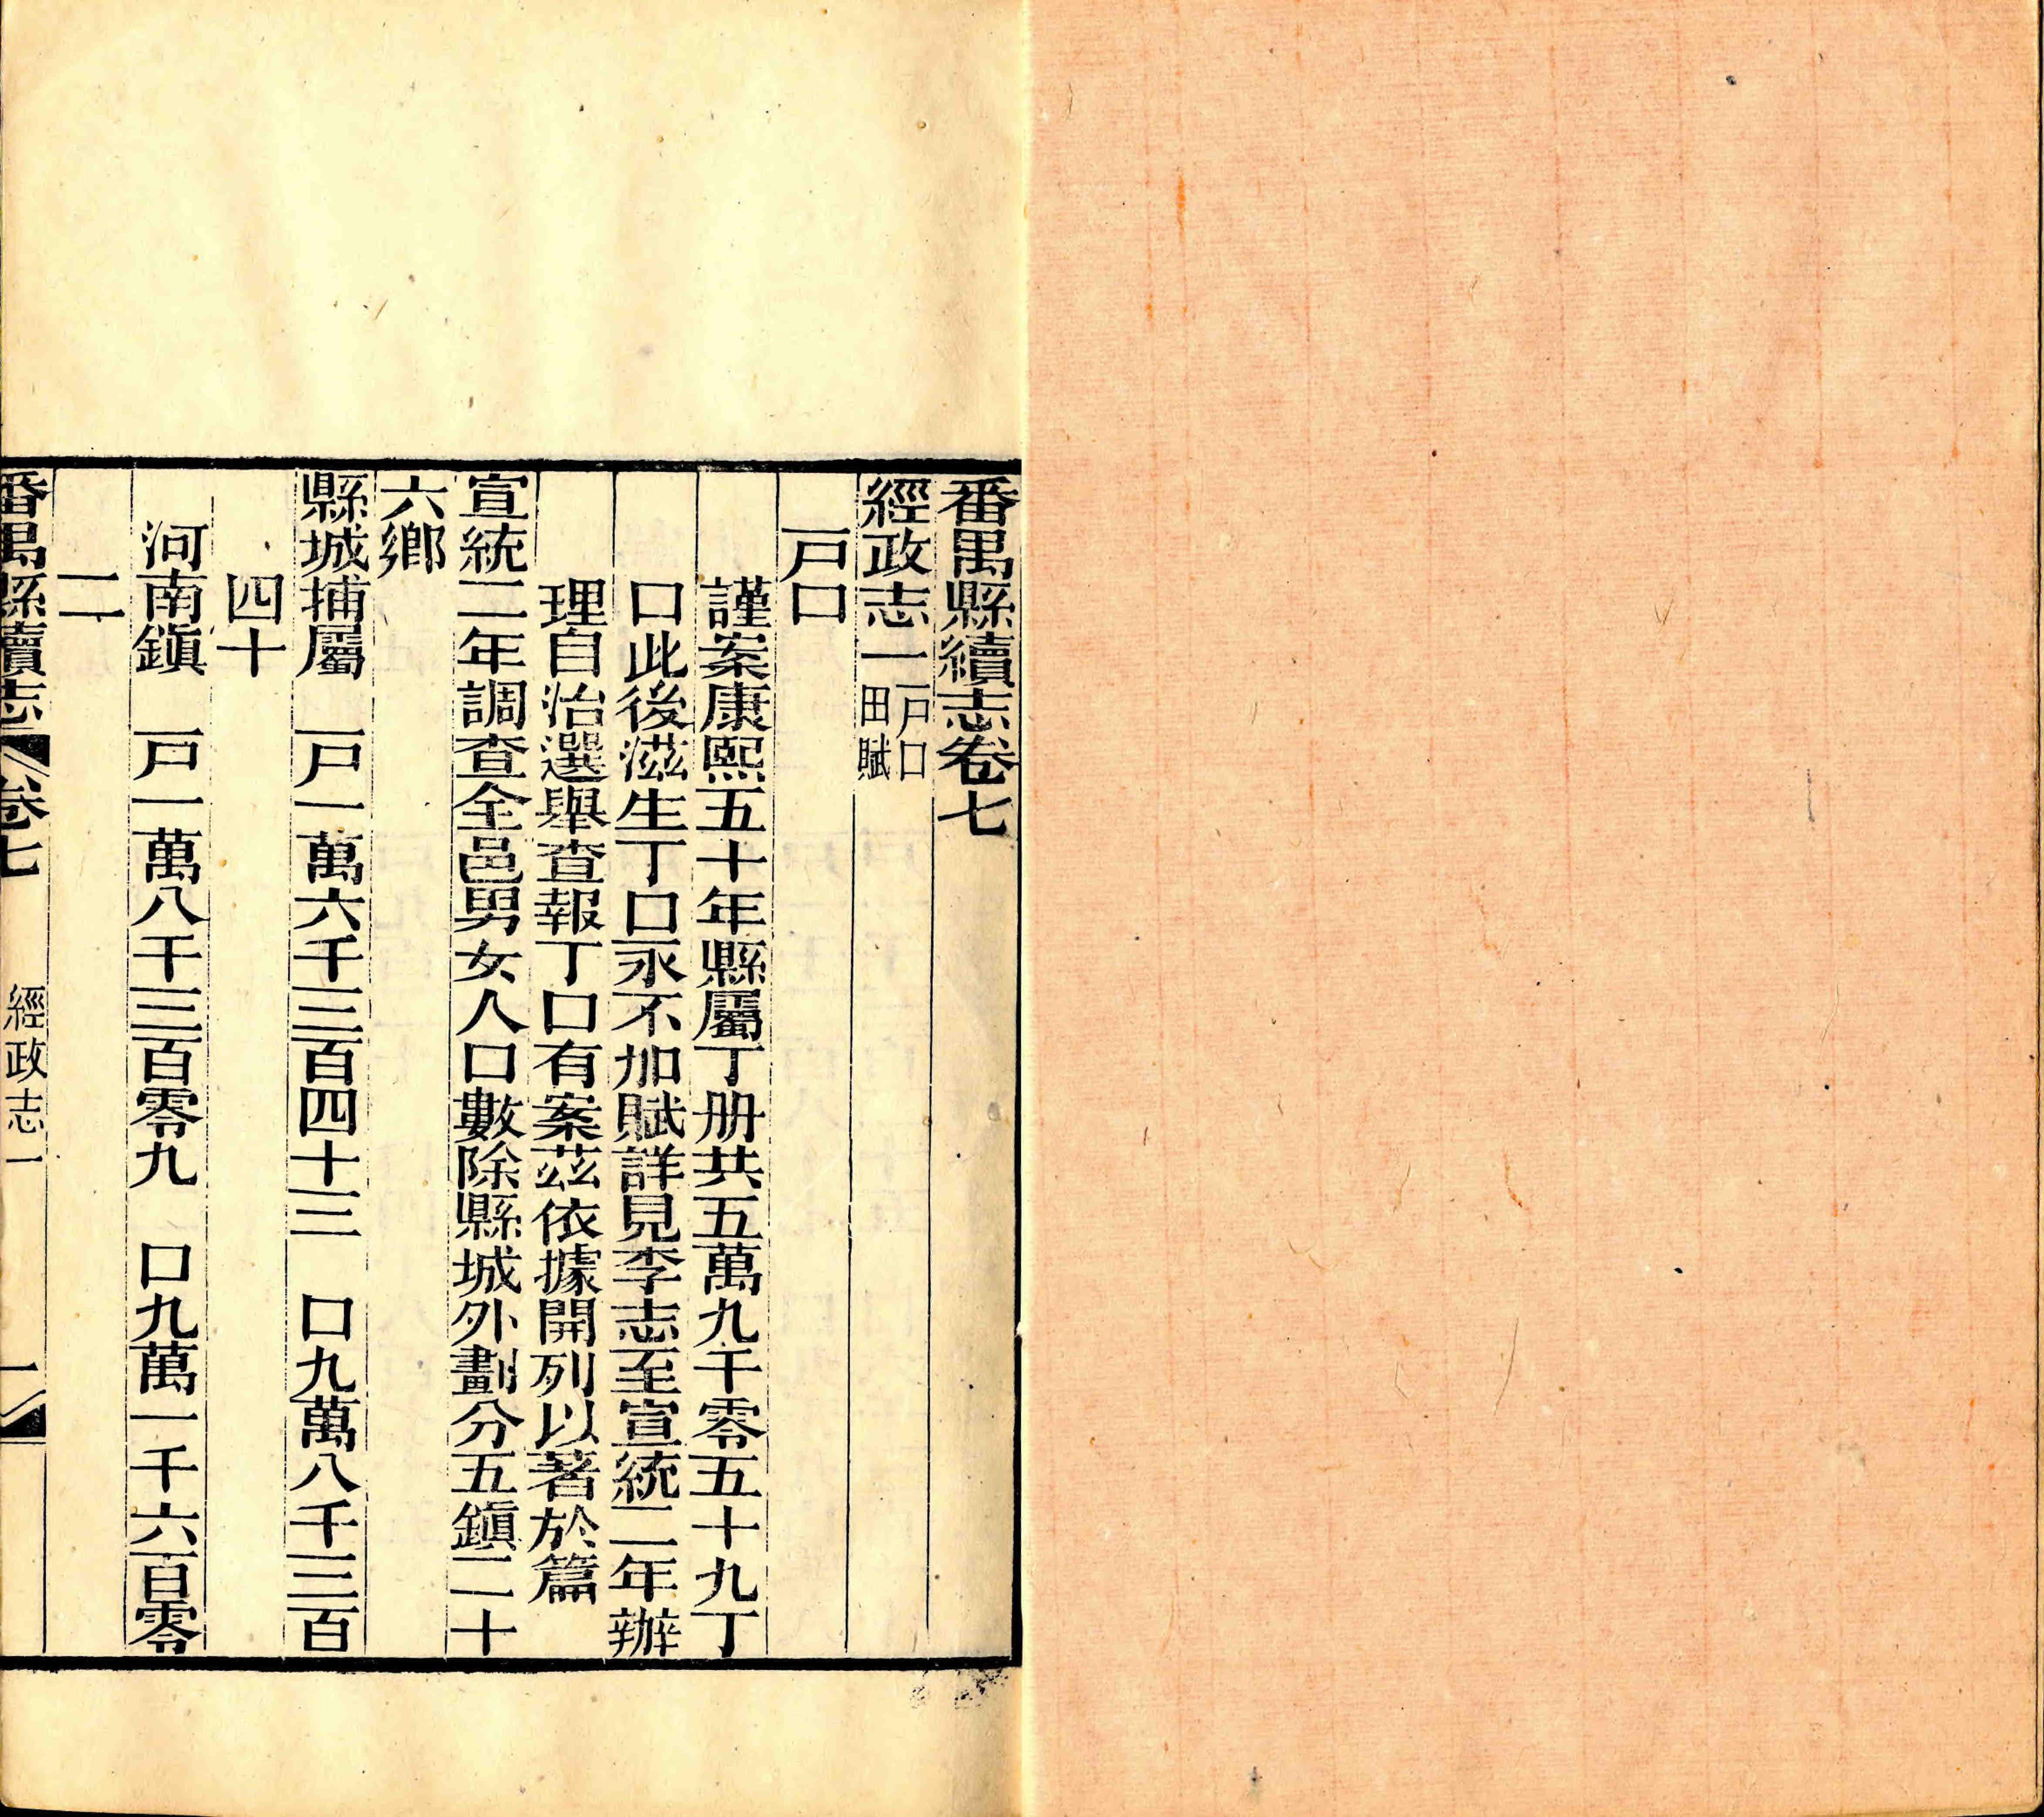 番禺縣續志卷七
經政志一戶口
田賦
戶口
謹案康熙五十年縣屬丁册共五萬九千零五十九丁
口此後滋生丁口永不加賦詳見李志至宣統二年辦
理自治選舉查報丁口有案茲依據開列以著於篇
宣統二年調查全邑男女人口數除縣城外劃分五鎭二十
六鄉
縣城捕屬　戶一萬六千三百四十三　口九萬八千三百
四十
河南鎭　戶一萬八千三百零九　口九萬一千六百零
二
番禺縣續志　卷七　經政志一　一